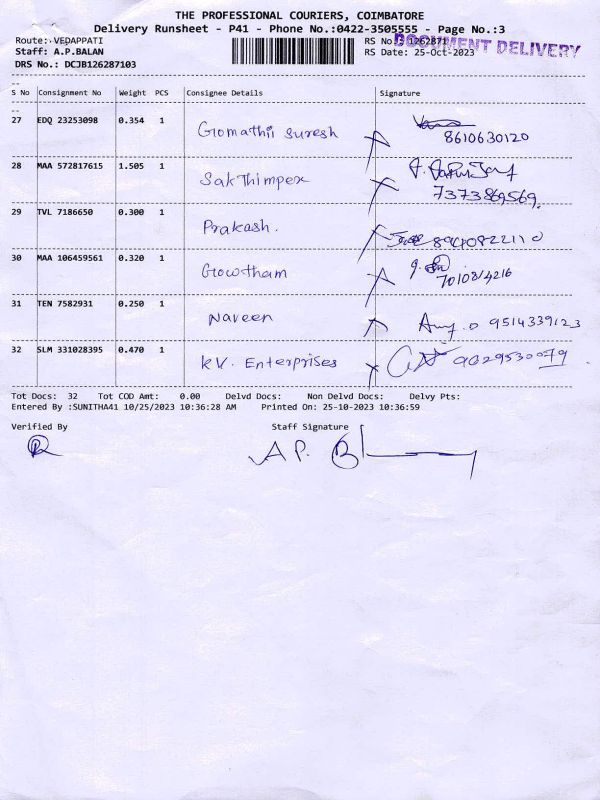 THE PROFESSIONAL COURIERS, COIMBATORE
Delivery Runsheet - P41 - Phone No.:0422-3505555 - Page No.:3
Route: VEDAPPATI RS No.: 1262871 DOCUMENT DELIVERY
Staff: A.P.BALAN RS Date: 25-Oct-2023
DRS No.: DCJB126287103
S No Consignment No Weight PCS Consignee Details Signature
27 EDQ 23253098 0.354 1 Gomathii Suresh 8610630120
28 MAA 572817615 1.505 1 Sakthimpex 7373869569
29 TVL 7186650 0.300 1 Prakash. 8940822110
30 MAA 106459561 0.320 1 Gowtham 7010814216
31 TEN 7582931 0.250 1 Naveen 9514339123
32 SLM 331028395 0.470 1 KV. Enterprises 9629530079
Tot Docs: 32 Tot COD Amt: 0.00 Delvd Docs: Non Delvd Docs: Delvy Pts:
Entered By :SUNITHA41 10/25/2023 10:36:28 AM Printed On: 25-10-2023 10:36:59
Verified By Staff Signature
A P. B